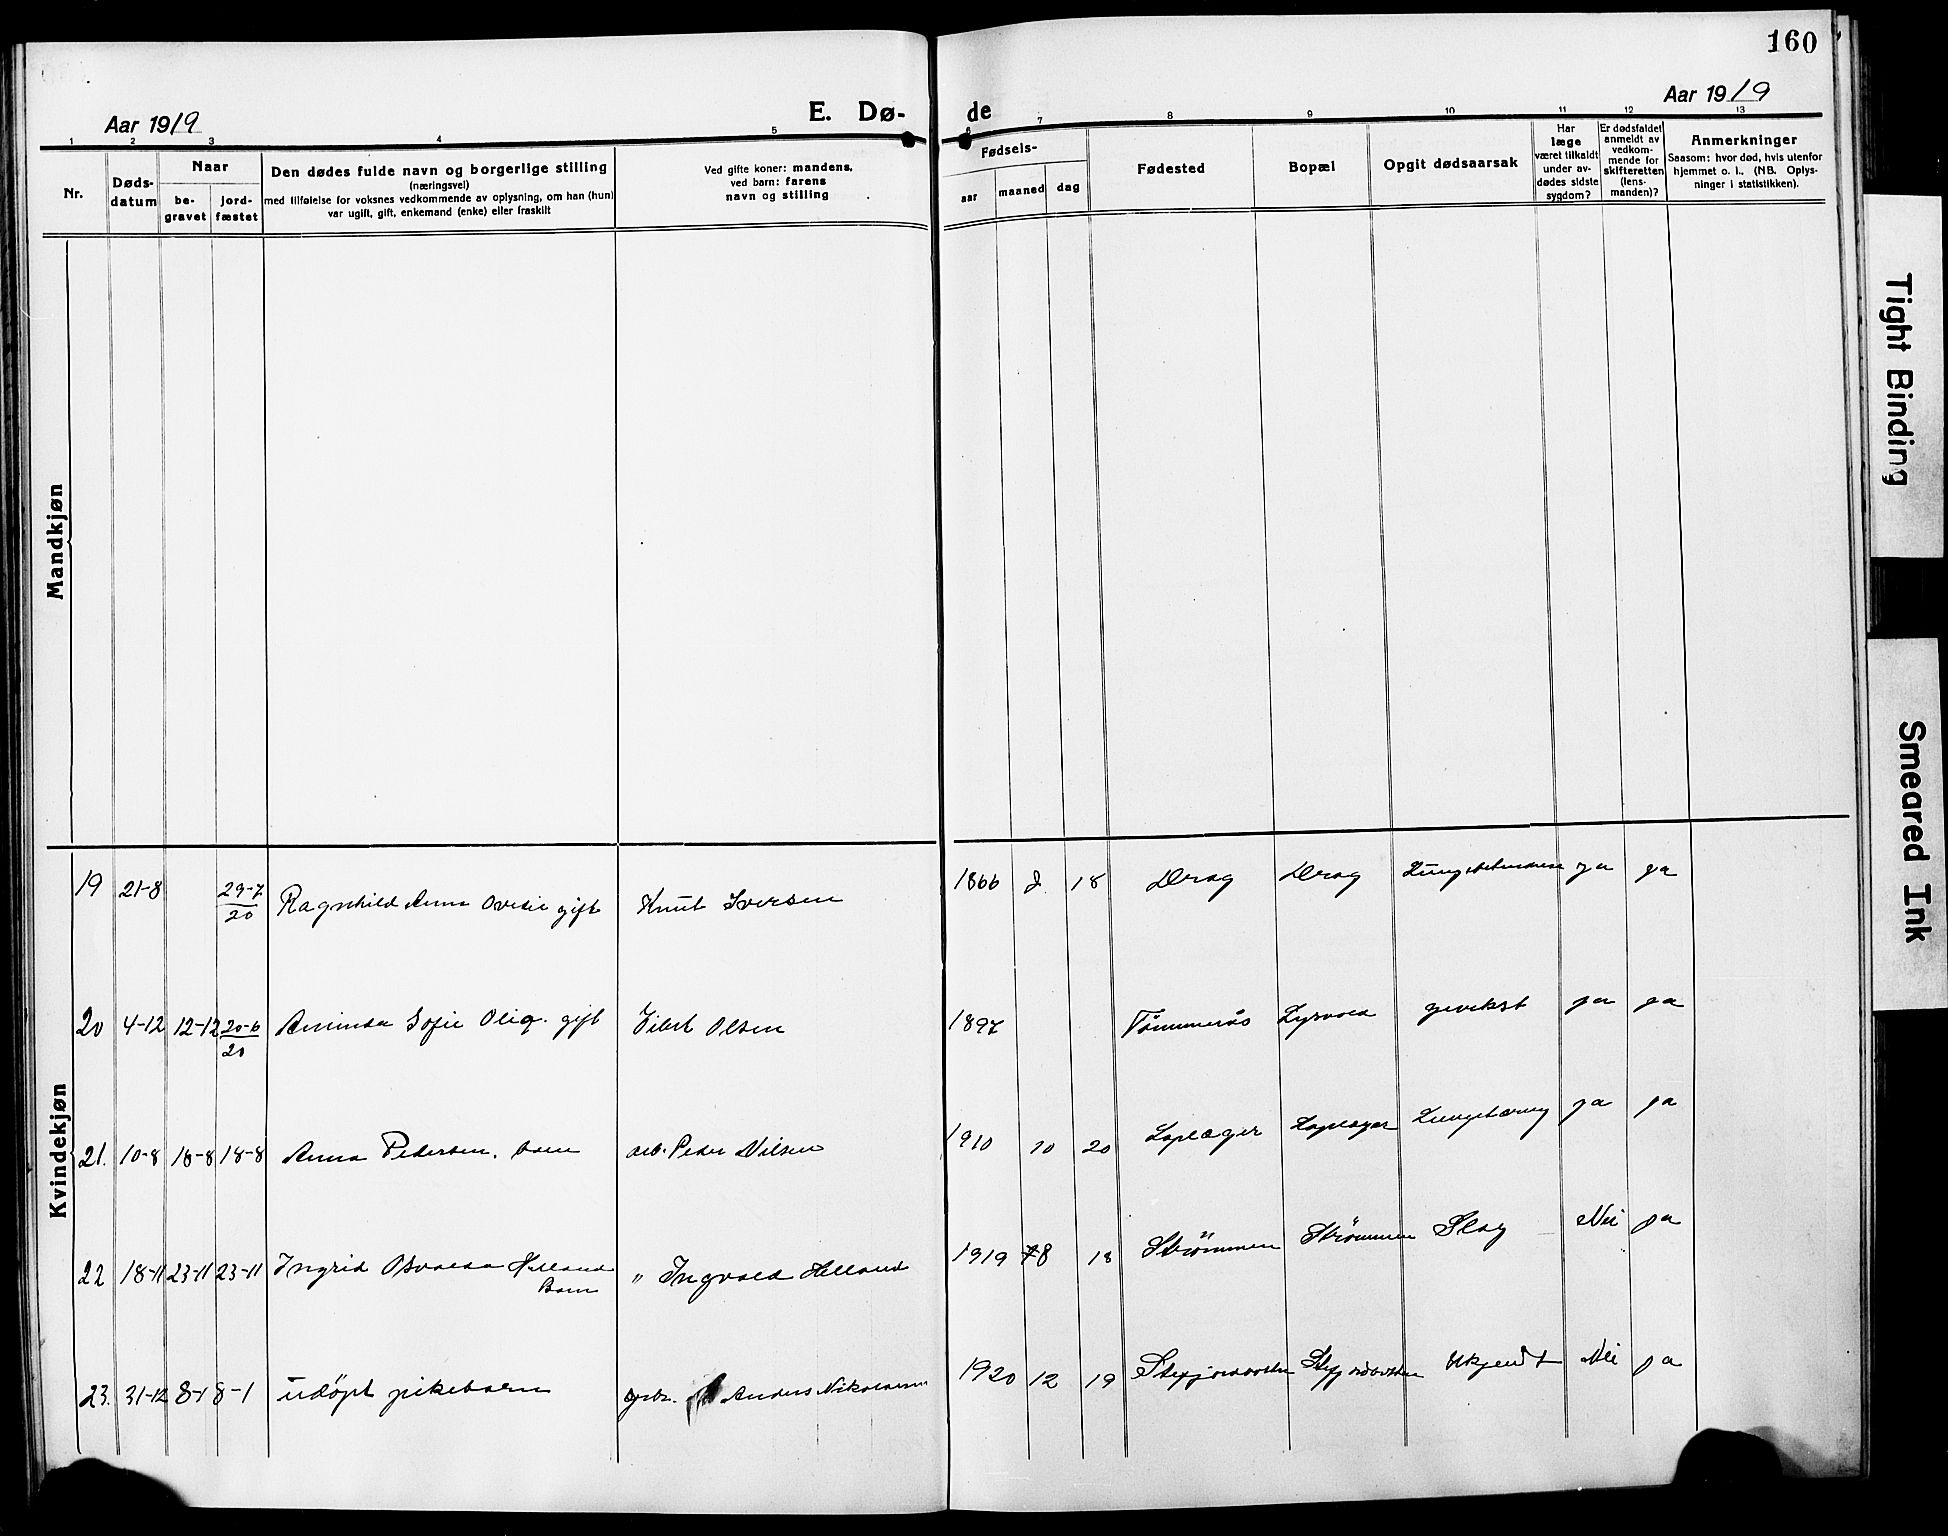 160
Aar 1919
E. Dø-
de
Aar 1919
1 2 3 4 5 6 7 8 9 10 11 12 13
Nr.
Døds-
datum
Naar
be-
gravet
jord-
fæstet
Den dødes fulde navn og borgerlige stilling
(næringsvei)
med tilføielse for voksnes vedkommende av oplysning, om han (hun)
var ugift, gift, enkemand (enke) eller fraskilt
Ved gifte koner: mandens,
ved barn: farens
navn og stilling
Fødsels-
aar
maaned
dag
Fødested
Bopæl
Opgit dødsaarsak
Har
læge
været tilkaldt
under av-
dødes sidste
sygdom?
Er dødsfaldet
anmeldt av
vedkom-
mende for
skifteretten
(lens-
manden)?
Anmerkninger
Saasom: hvor død, hvis utenfor
hjemmet o. l. (NB. Oplys-
ninger i statistikken).
Mandkjøn
Kvindekjøn
19 21-8 29-7/20 Ragnhild Anna gift Knut Iversen 1866 18 Drag Drag ja ja
20 4-12 12-12 20-6/20 Sofie gift Olsen 1897 Tømmerås gja ja
21. 10-8 18-8 18-8 Anna Pedersen, barn arb. Peder Nilsen 1910 10 20 ja ja
22 18-11 23-11 23-11 Ingrid Osvalda Helland
Barn
" Ingvald Helland 1919 8 18 Strømmen Strømmen Slag Nei ja
23. 31-12 8-1 8-1 udöpt pikebarn grbr. Anders Nikolaisen 1920 12 19 Ukjendt Nei ja
Tight Binding
Smeared Ink